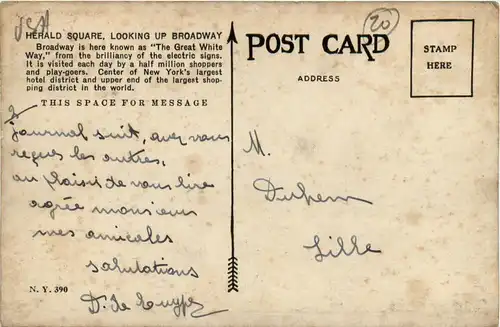 USA
HERALD SQUARE, LOOKING UP BROADWAY
Broadway is here known as "The Great White
Way," from the brilliancy of the electric signs.
It is visited each day by a half million shoppers
and play-goers. Center of New York's largest
hotel district and upper end of the largest shop-
ping district in the world.
THIS SPACE FOR MESSAGE
journal suit, avez vous
reçues les autres,
au plaisir de vous lire
agrée monsieur
mes amicales
salutations
D. de
N. Y. 390
20
POST CARD
ADDRESS
STAMP
HERE
M.
Duhem
Lille